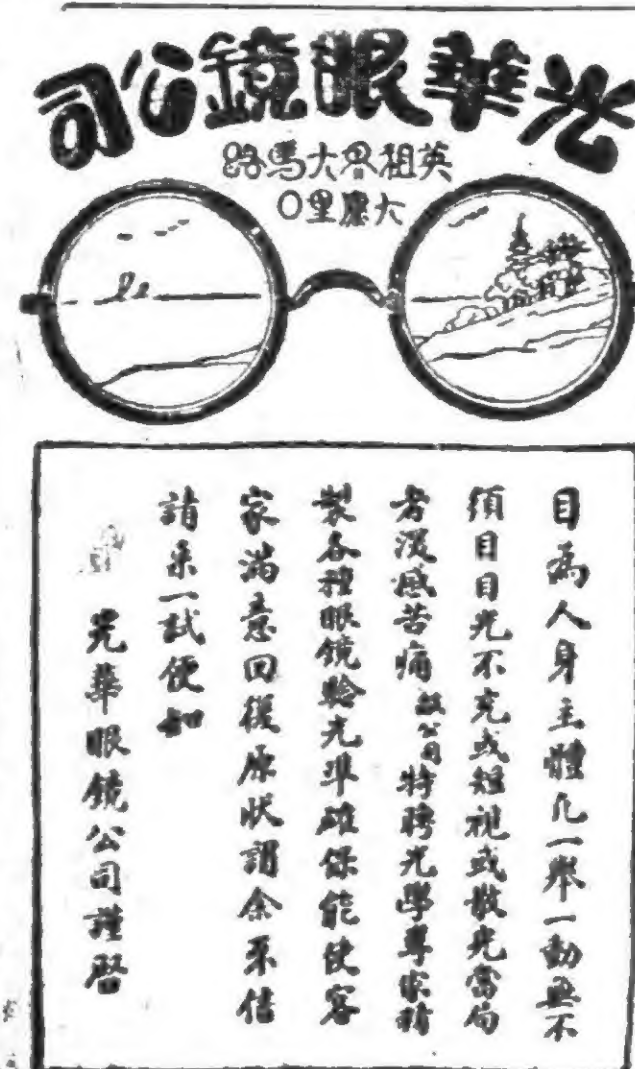 光華眼鏡公司
英租界大馬路
大慶里口
目為人身主體凡一舉一動無不
須目目光不充或短視或散光當局
者深感苦痛敝公司特聘光學專家精
製各種眼鏡驗光準確保能使客
家滿意回復原狀謂余不信
請來一試便知
光華眼鏡公司謹啓